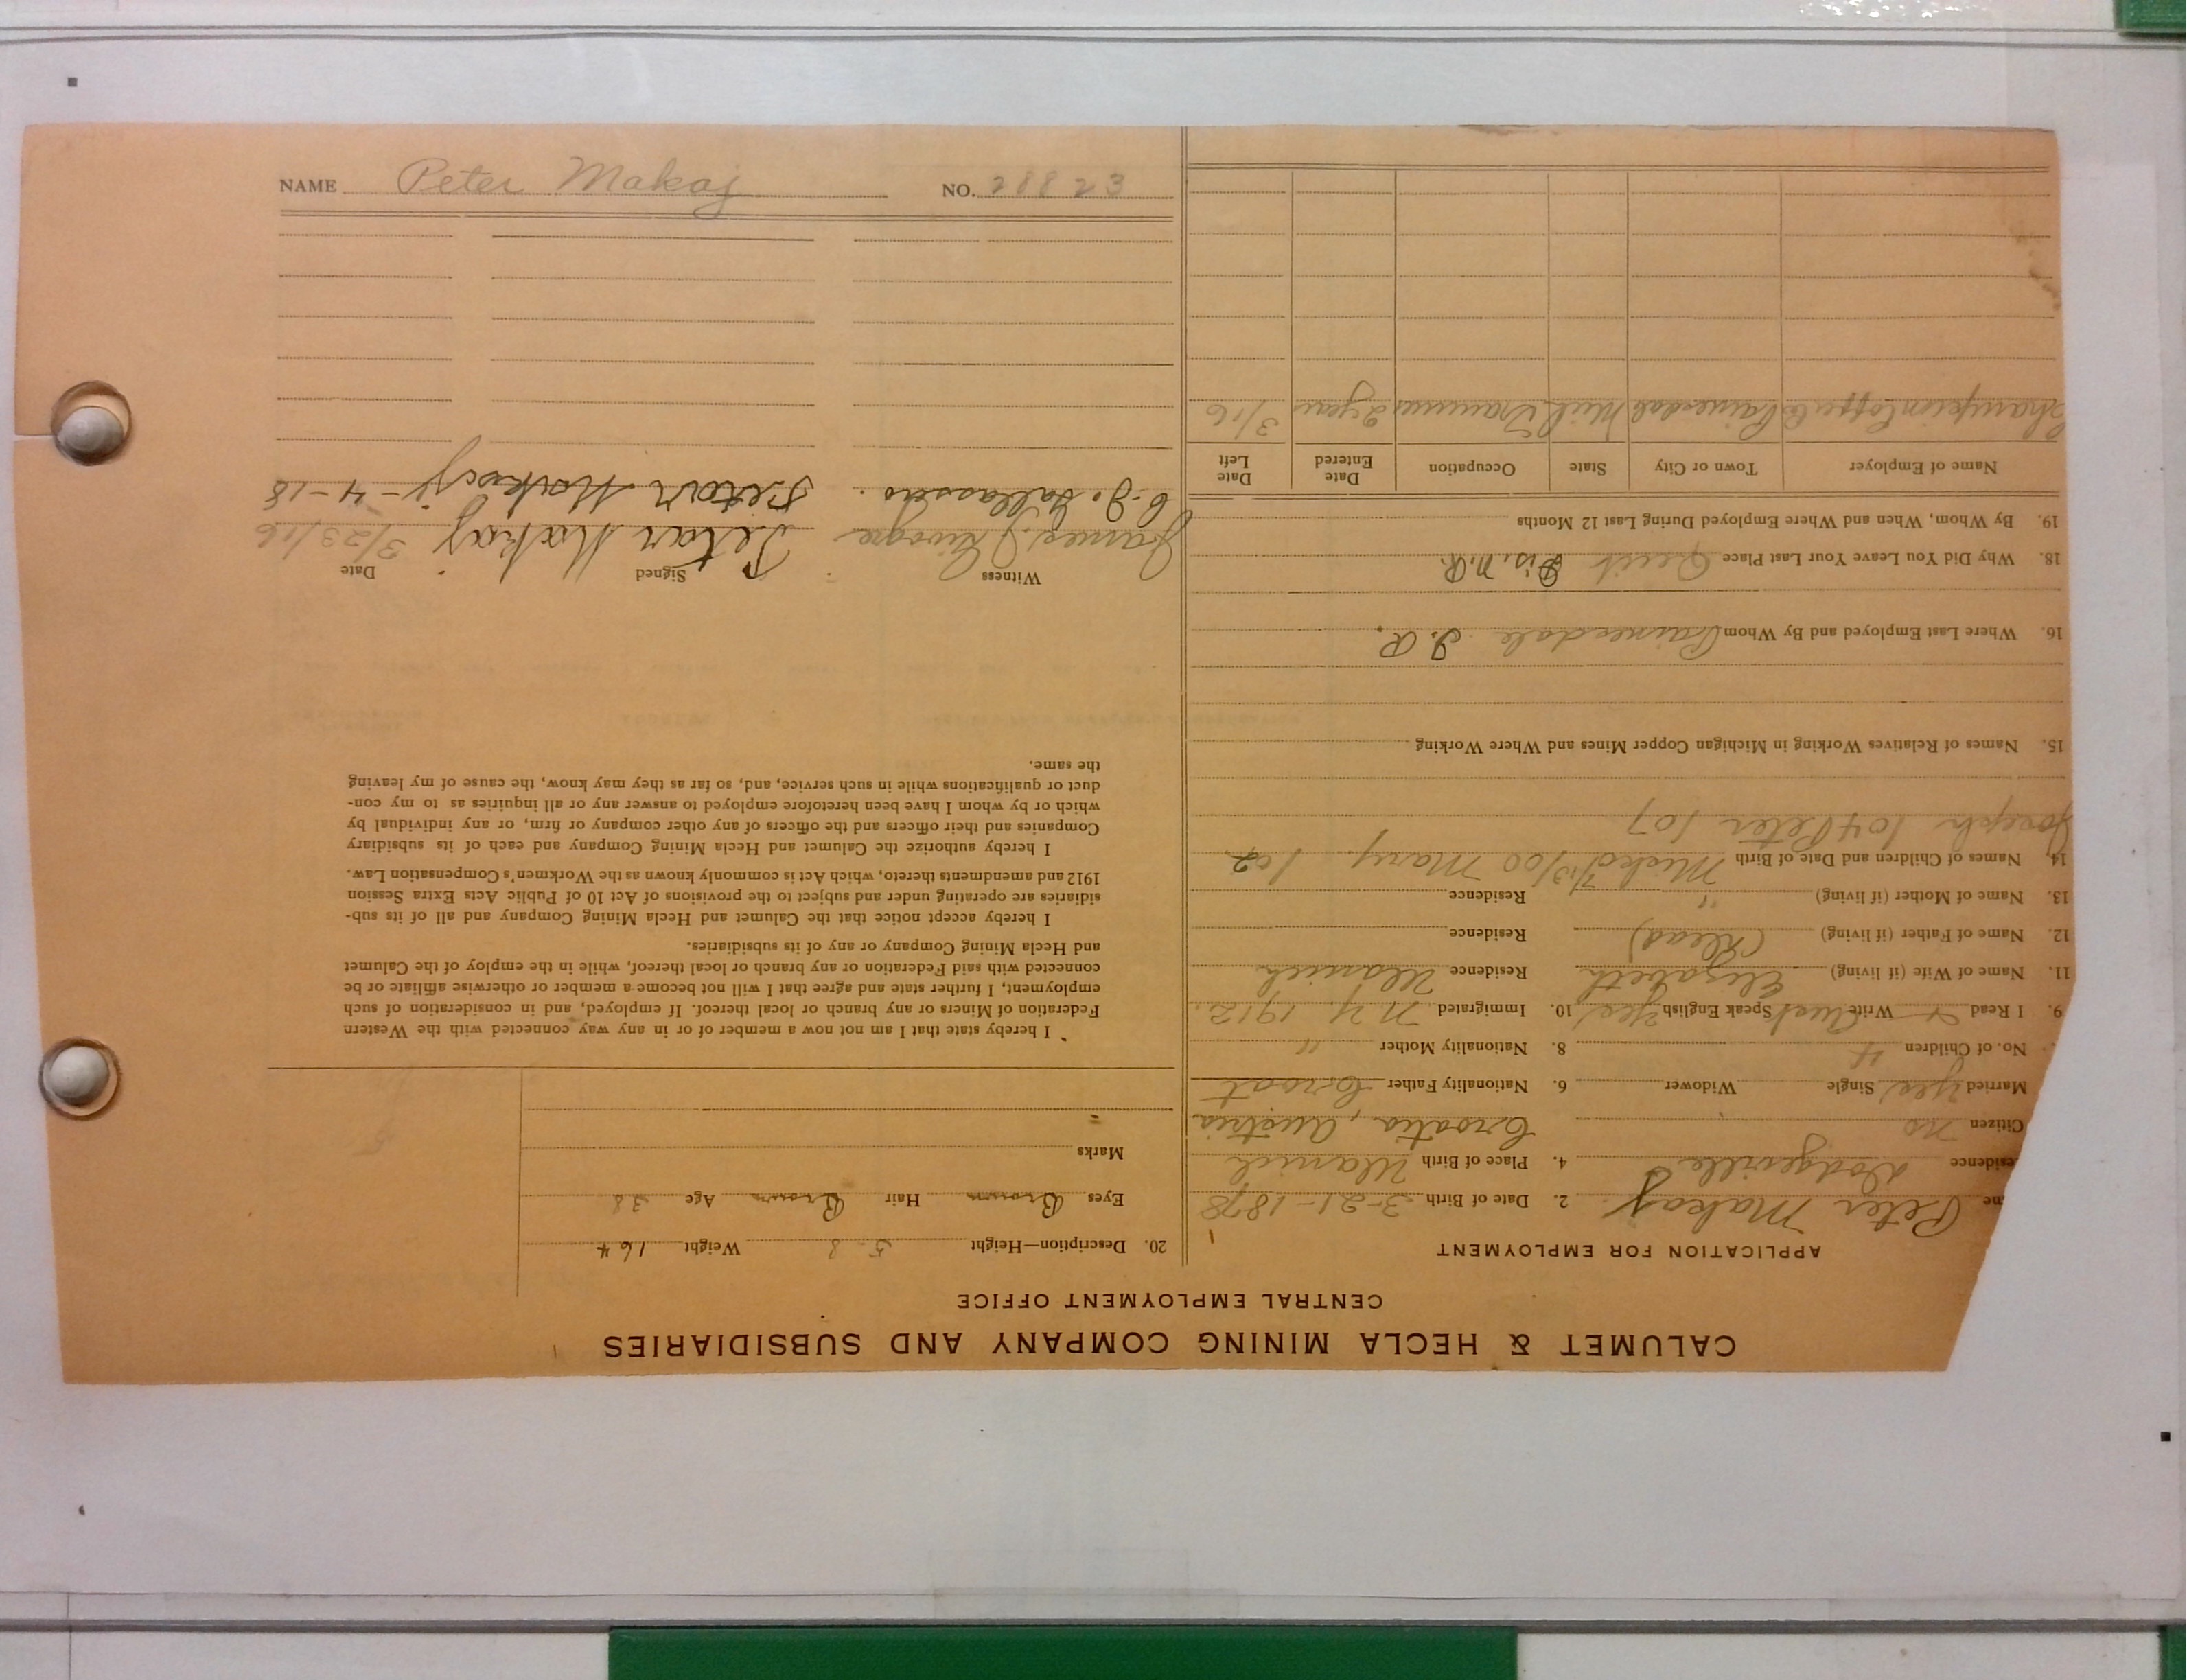 NAME Peter Makaj NO. 28823
CALUMET & HECLA MINING COMPANY AND SUBSIDIARIES
CENTRAL EMPLOYMENT OFFICE
APPLICATION FOR EMPLOYMENT
me Peter Makaj 2. Date of Birth 3-21-1878
esidence Dodgeville 4. Place of Birth
Citizen no Croatia, Austria
Married Yes Single Widower 6. Nationality Father Croat
No. of Children 4 8. Nationality Mother "
9. I Read Write Speak English Yes 10. Immigrated N.Y. 1912.
11. Name of Wife (if living) Elizabeth Residence
12. Name of Father (if living) (Dead) Residence
13. Name of Mother (if living) " Residence
14. Names of Children and Date of Birth 7/13/00 Mary 1902
Joseph 104 Peter 107
15. Names of Relatives Working in Michigan Copper Mines and Where Working
16. Where Last Employed and By Whom Painesdale I.R.
18. Why Did You Leave Your Last Place Quit Dis. N.R.
19. By Whom, When and Where Employed During Last 12 Months
Name of Employer Town or City State Occupation Date Entered Date Left
Champion Copper Co Painesdale Mich Trammer 2 years 3/16
20. Description—Height 5-8 Weight 164
Eyes Brown Hair Brown Age 38
Marks
I hereby state that I am not now a member of or in any way connected with the Western
Federation of Miners or any branch or local thereof. If employed, and in consideration of such
employment, I further state and agree that I will not become a member or otherwise affiliate or be
connected with said Federation or any branch or local thereof, while in the employ of the Calumet
and Hecla Mining Company or any of its subsidiaries.
I hereby accept notice that the Calumet and Hecla Mining Company and all of its sub-
sidiaries are operating under and subject to the provisions of Act 10 of Public Acts Extra Session
1912 and amendments thereto, which Act is commonly known as the Workmen's Compensation Law.
I hereby authorize the Calumet and Hecla Mining Company and each of its subsidiary
Companies and their officers and the officers of any other company or firm, or any individual by
which or by whom I have been heretofore employed to answer any or all inquiries as to my con-
duct or qualifications while in such service, and, so far as they may know, the cause of my leaving
the same.
Witness Signed Date
James Petar Makaj 3/23/16
C. J. Petar Makaj 4-4-18